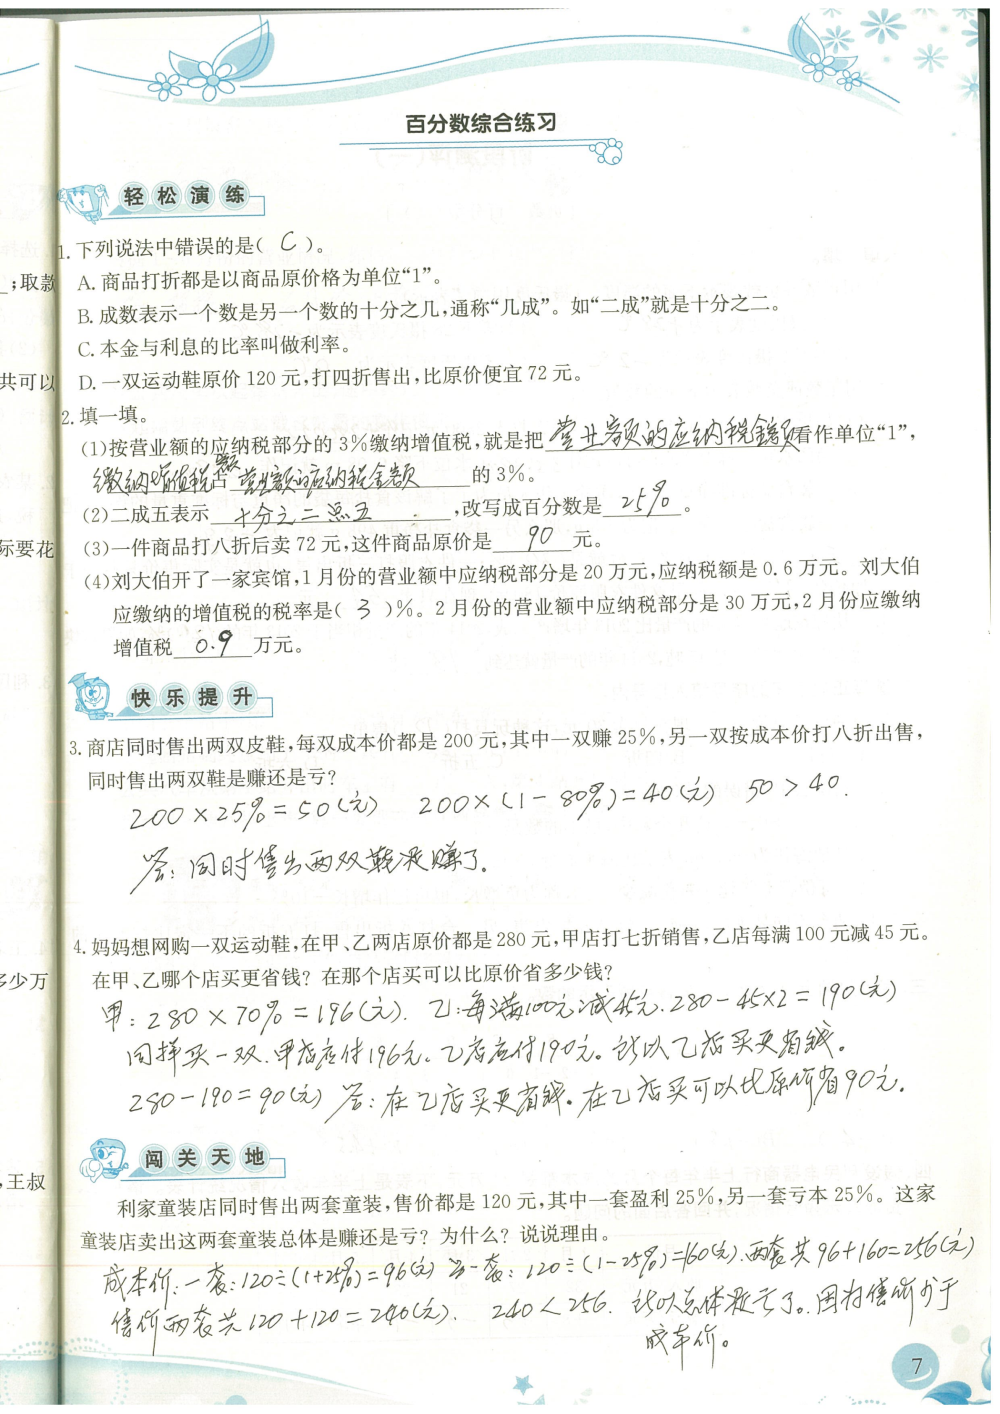 百分数综合练习
轻松演练
1.下列说法中错误的是( C )。
;取款
A.商品打折都是以商品原价格为单位“1”。
B.成数表示一个数是另一个数的十分之几,通称“几成”。如“二成”就是十分之二。
C.本金与利息的比率叫做利率。
共可以
D.一双运动鞋原价120元,打四折售出,比原价便宜72元。
2.填一填。
(1)按营业额的应纳税部分的3%缴纳增值税,就是把 营业额的应纳税金额 看作单位“1”,
缴纳增值税占营业额的应纳税金额 的3%。
(2)二成五表示 十分之二点五 ,改写成百分数是 25% 。
际要花
(3)一件商品打八折后卖72元,这件商品原价是 90 元。
(4)刘大伯开了一家宾馆,1月份的营业额中应纳税部分是20万元,应纳税额是0.6万元。刘大伯
应缴纳的增值税的税率是( 3 )%。2月份的营业额中应纳税部分是30万元,2月份应缴纳
增值税 0.9 万元。
快乐提升
3.商店同时售出两双皮鞋,每双成本价都是200元,其中一双赚25%,另一双按成本价打八折出售,
同时售出两双鞋是赚还是亏?
200×25%=50(元) 200×(1-80%)=40(元) 50>40.
答:同时售出两双鞋是赚了。
4.妈妈想网购一双运动鞋,在甲、乙两店原价都是280元,甲店打七折销售,乙店每满100元减45元。
多少万
在甲、乙哪个店买更省钱? 在那个店买可以比原价省多少钱?
甲:280×70%=196(元). 乙:每满100元减45元.280-45×2=190(元)
同样买一双.甲店应付196元。乙店应付190元。所以乙店买更省钱。
280-190=90(元) 答:在乙店买更省钱。在乙店买可以比原价省90元。
闯关天地
,王叔
利家童装店同时售出两套童装,售价都是120元,其中一套盈利25%,另一套亏本25%。这家
童装店卖出这两套童装总体是赚还是亏? 为什么? 说说理由。
成本价:一套:120÷(1+25%)=96(元) 另一套:120÷(1-25%)=160(元).两套共96+160=256(元)
售价两套共120+120=240(元). 240<256. 所以总体是亏了.因为售价少于
成本价。
7